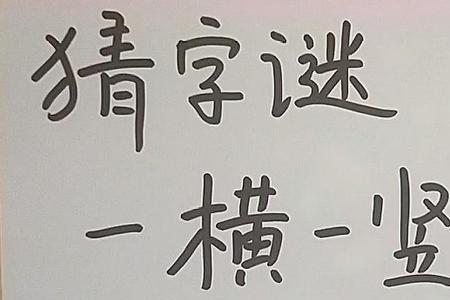 猜字谜
一横一竖